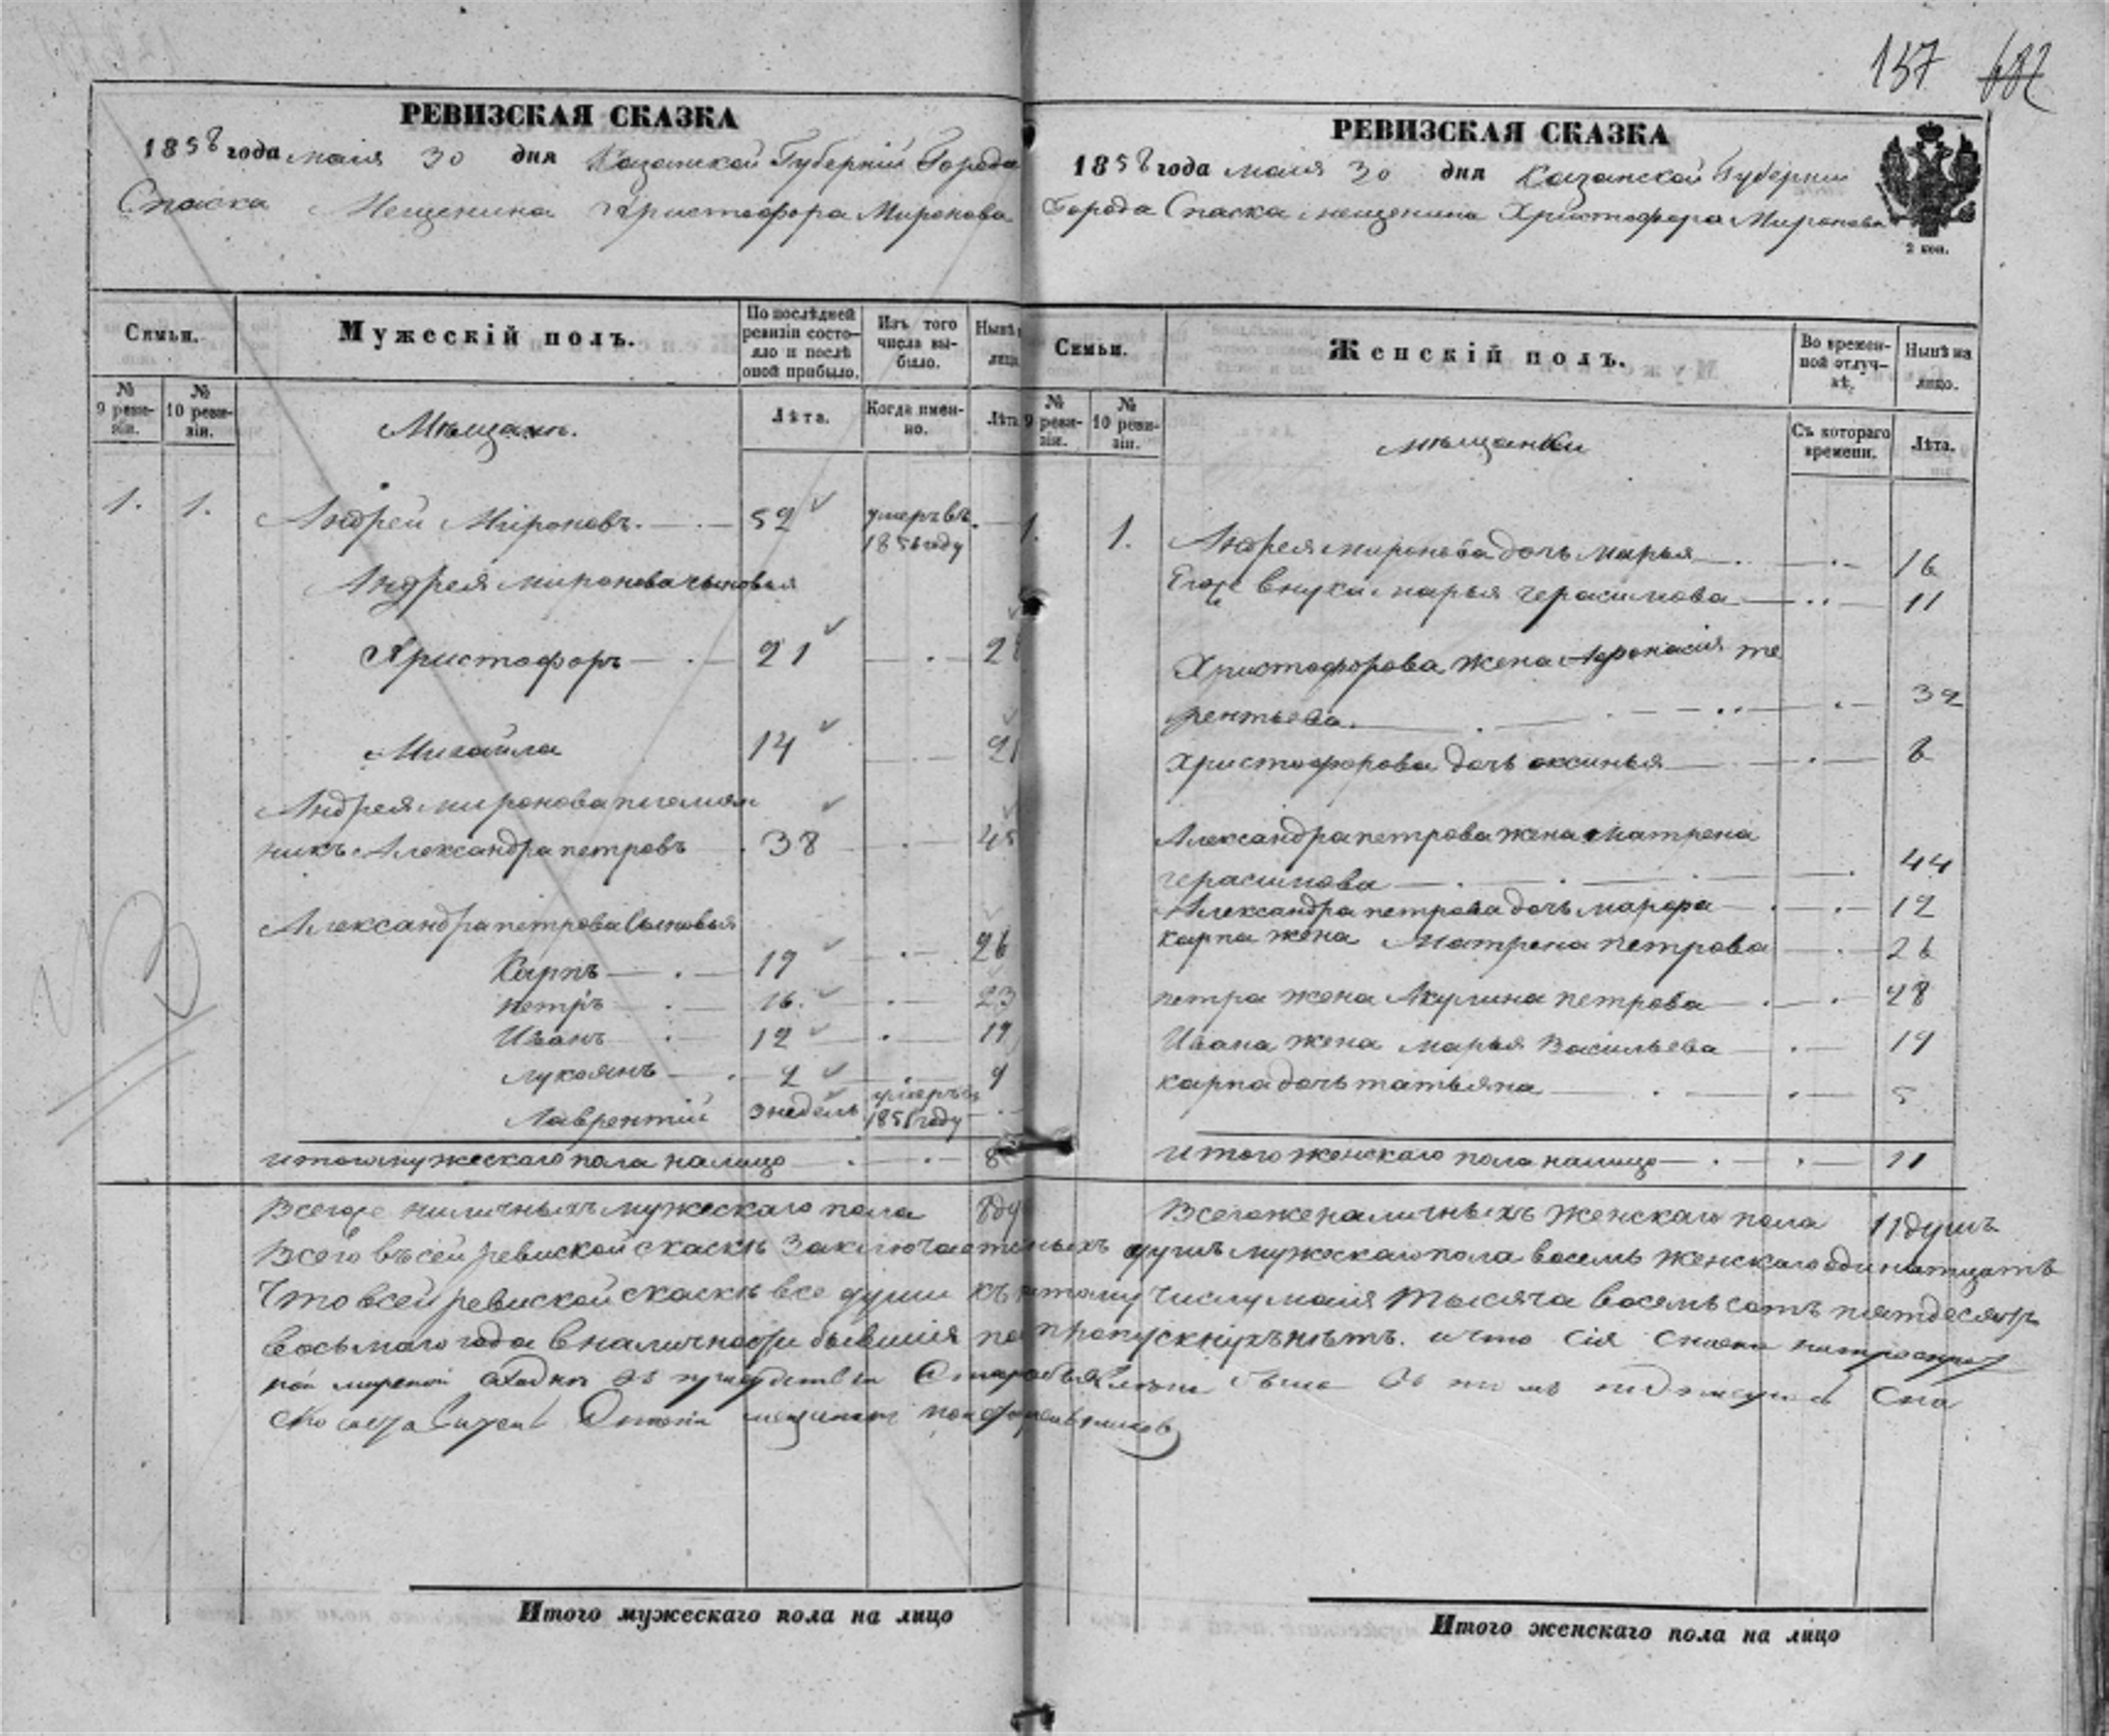 157 682
РЕВИЗСКАЯ СКАЗКА
1858 года маія 30 дня Казанской Губерніи Города
Спаска Мещенина Христофора Миронова
Семьи. Мужескій полъ. По послѣдней ревизіи состояло и послѣ оной прибыло. Изъ того числа выбыло. Нынѣ лицо.
№ 9 ревизіи. № 10 ревизіи. Мѣщане. Лѣта. Когда именно. Лѣта
1. 1. Андрей Мироновъ. 52 умеръ въ
1856 году
Андрея миронова сыновья
Христофоръ 21 28
Михайла 14 21
Андрея миронова племян
никъ Александра петровъ 38 45
Александра петрова сыновья
Карпъ 19 26
петръ 16. 23
Иванъ 12 19
лукоянъ 2 9
Лаврентій 3 недель умеръ въ
1851 году
итого мужескаго пола налицо 8
Всего же наличныхъ мужескаго пола 8 ду
РЕВИЗСКАЯ СКАЗКА
1858 года маія 30 дня Казанской Губерніи
Города Спаска мещенина Христофора Миронова
2 коп.
Семьи. Женскій полъ. Во временной отлучкѣ. Нынѣ на лицо.
№ 9 ревизіи. № 10 ревизіи. мѣщанки Съ котораго времени. Лѣта.
1. 1. Андрея миронова дочь марья 16
Его же внука марья герасимова 11
Христофорова жена Афонасія те
рентьева. 32
Христофорова дочь оксинья 8
Александра петрова жена матрена
герасимова 44
Александра петрова дочь марфа 12
карпа жена Матрена петрова 26
петра жена Акулина петрова 28
Ивана жена марья Васильева 19
карпа дочь татьяна 5
итого женскаго пола налицо 11
Всего же наличныхъ женскаго пола 11 душъ
Всего въ сей ревиской скаскѣ заключается душъ мужескаго пола восемь женскаго одинатцать
Что всей ревиской скаскѣ все души къ числу маія тысяча восемь сотъ пятдесятъ
восьмаго года в наличности бывшія нѣтъ. и что сія
Итого мужескаго пола на лицо
Итого женскаго пола на лицо